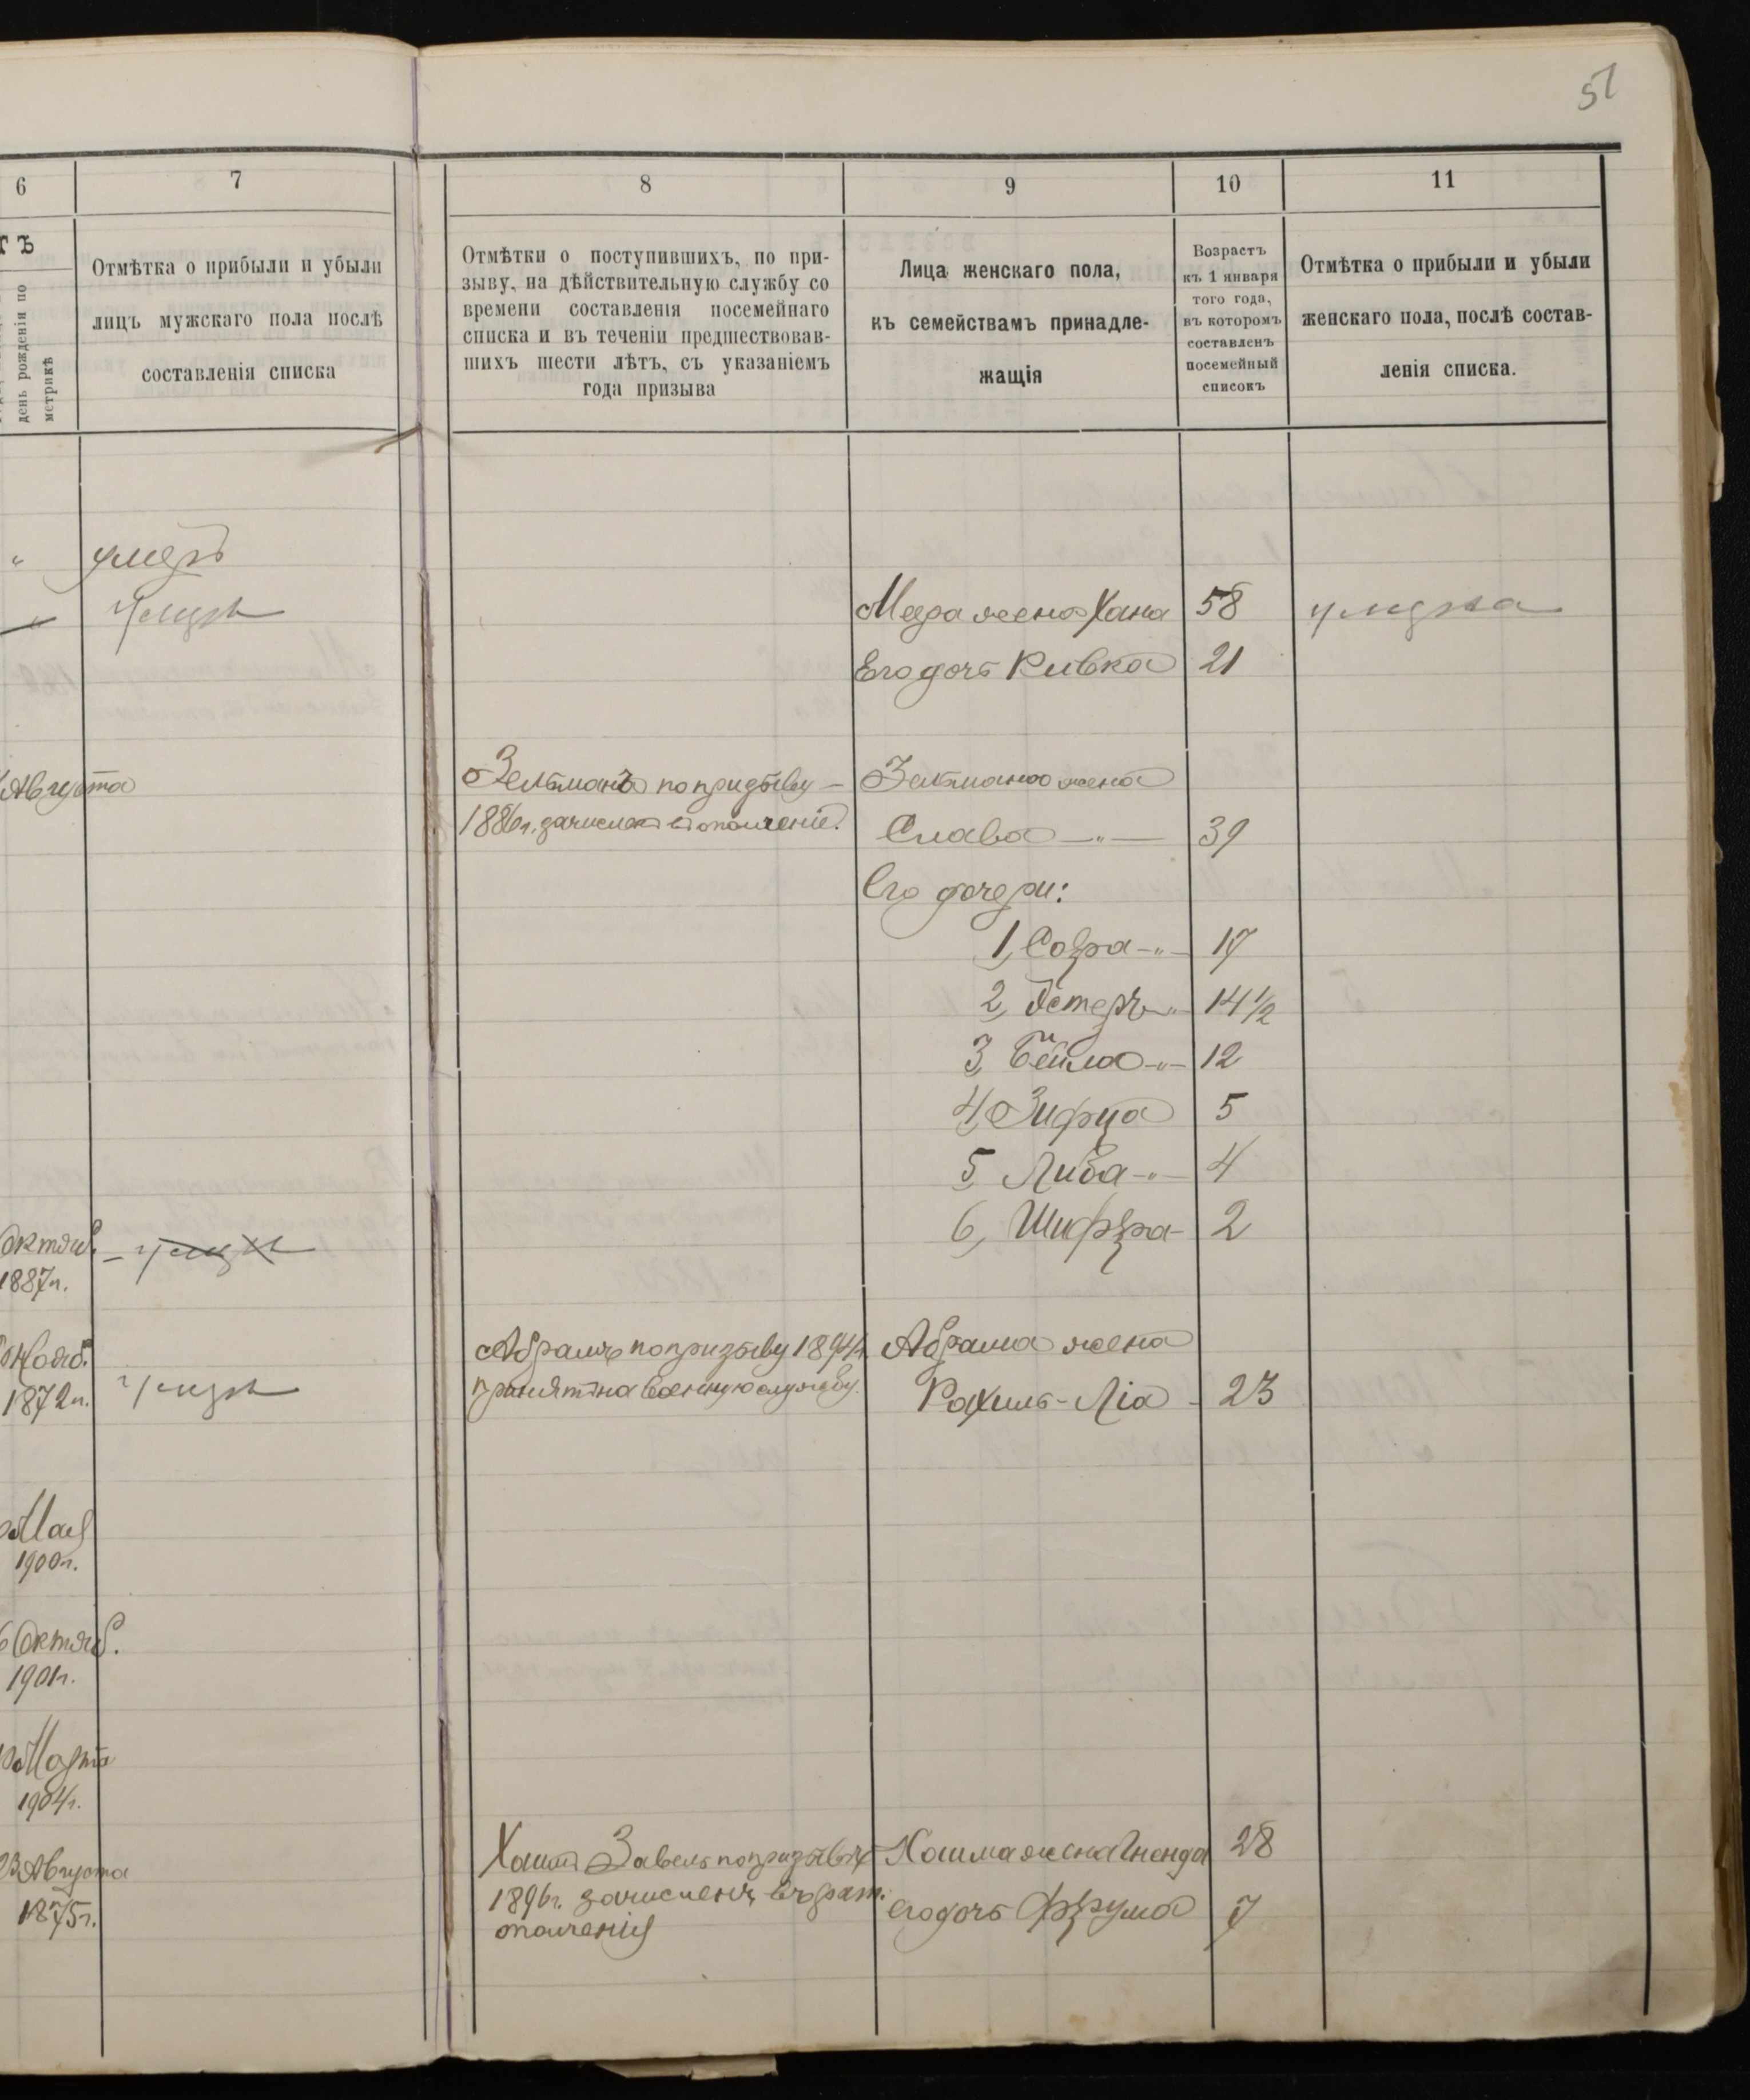 51
6
7
8
9
10
11
ТЪ
день рожденія по
метрикѣ
Отмѣтка о прибыли и убыли
лицъ мужскаго пола послѣ
составленія списка
Отмѣтки о поступившихъ, по при-
зыву, на дѣйствительную службу со
времени составленія посемейнаго
списка и въ теченіи предшествовав-
шихъ шести лѣтъ, съ указаніемъ
года призыва
Лица женскаго пола,
къ семействамъ принадле-
жащія
Возрастъ
къ 1 января
того года,
въ которомъ
составленъ
посемейный
списокъ
Отмѣтка о прибыли и убыли
женскаго пола, послѣ состав-
ленія списка.
" умеръ
" умеръ
Меера жена Хана 58 умерла
Его дочь Ривка 21
Августа
Зельманъ по призыву — Зельмана жена
1886г. зачисленъ въ ополченіе. Слава —"— 39
Его дочери:
1, Сора -"- 17
2, Эстеръ -"- 14 1/2
3, Бейла -"- 12
4, Зифца 5
5, Либа -"- 4
6, Шифра - 2
Октяб. - умеръ
1887г.
Нояб. Абрамъ по призыву 1894г. Абрама жена
1872г. умеръ принятъ на военную службу. Рохиль-Ліа - 23
Мая
1900г.
Октяб.
1901г.
Марта
1904г.
23 Августа Хаимъ Завель по призыву Хаима жена Гненда 28
1875г. 1896г. зачисленъ въ рат. его дочь Фрума 7
ополченія